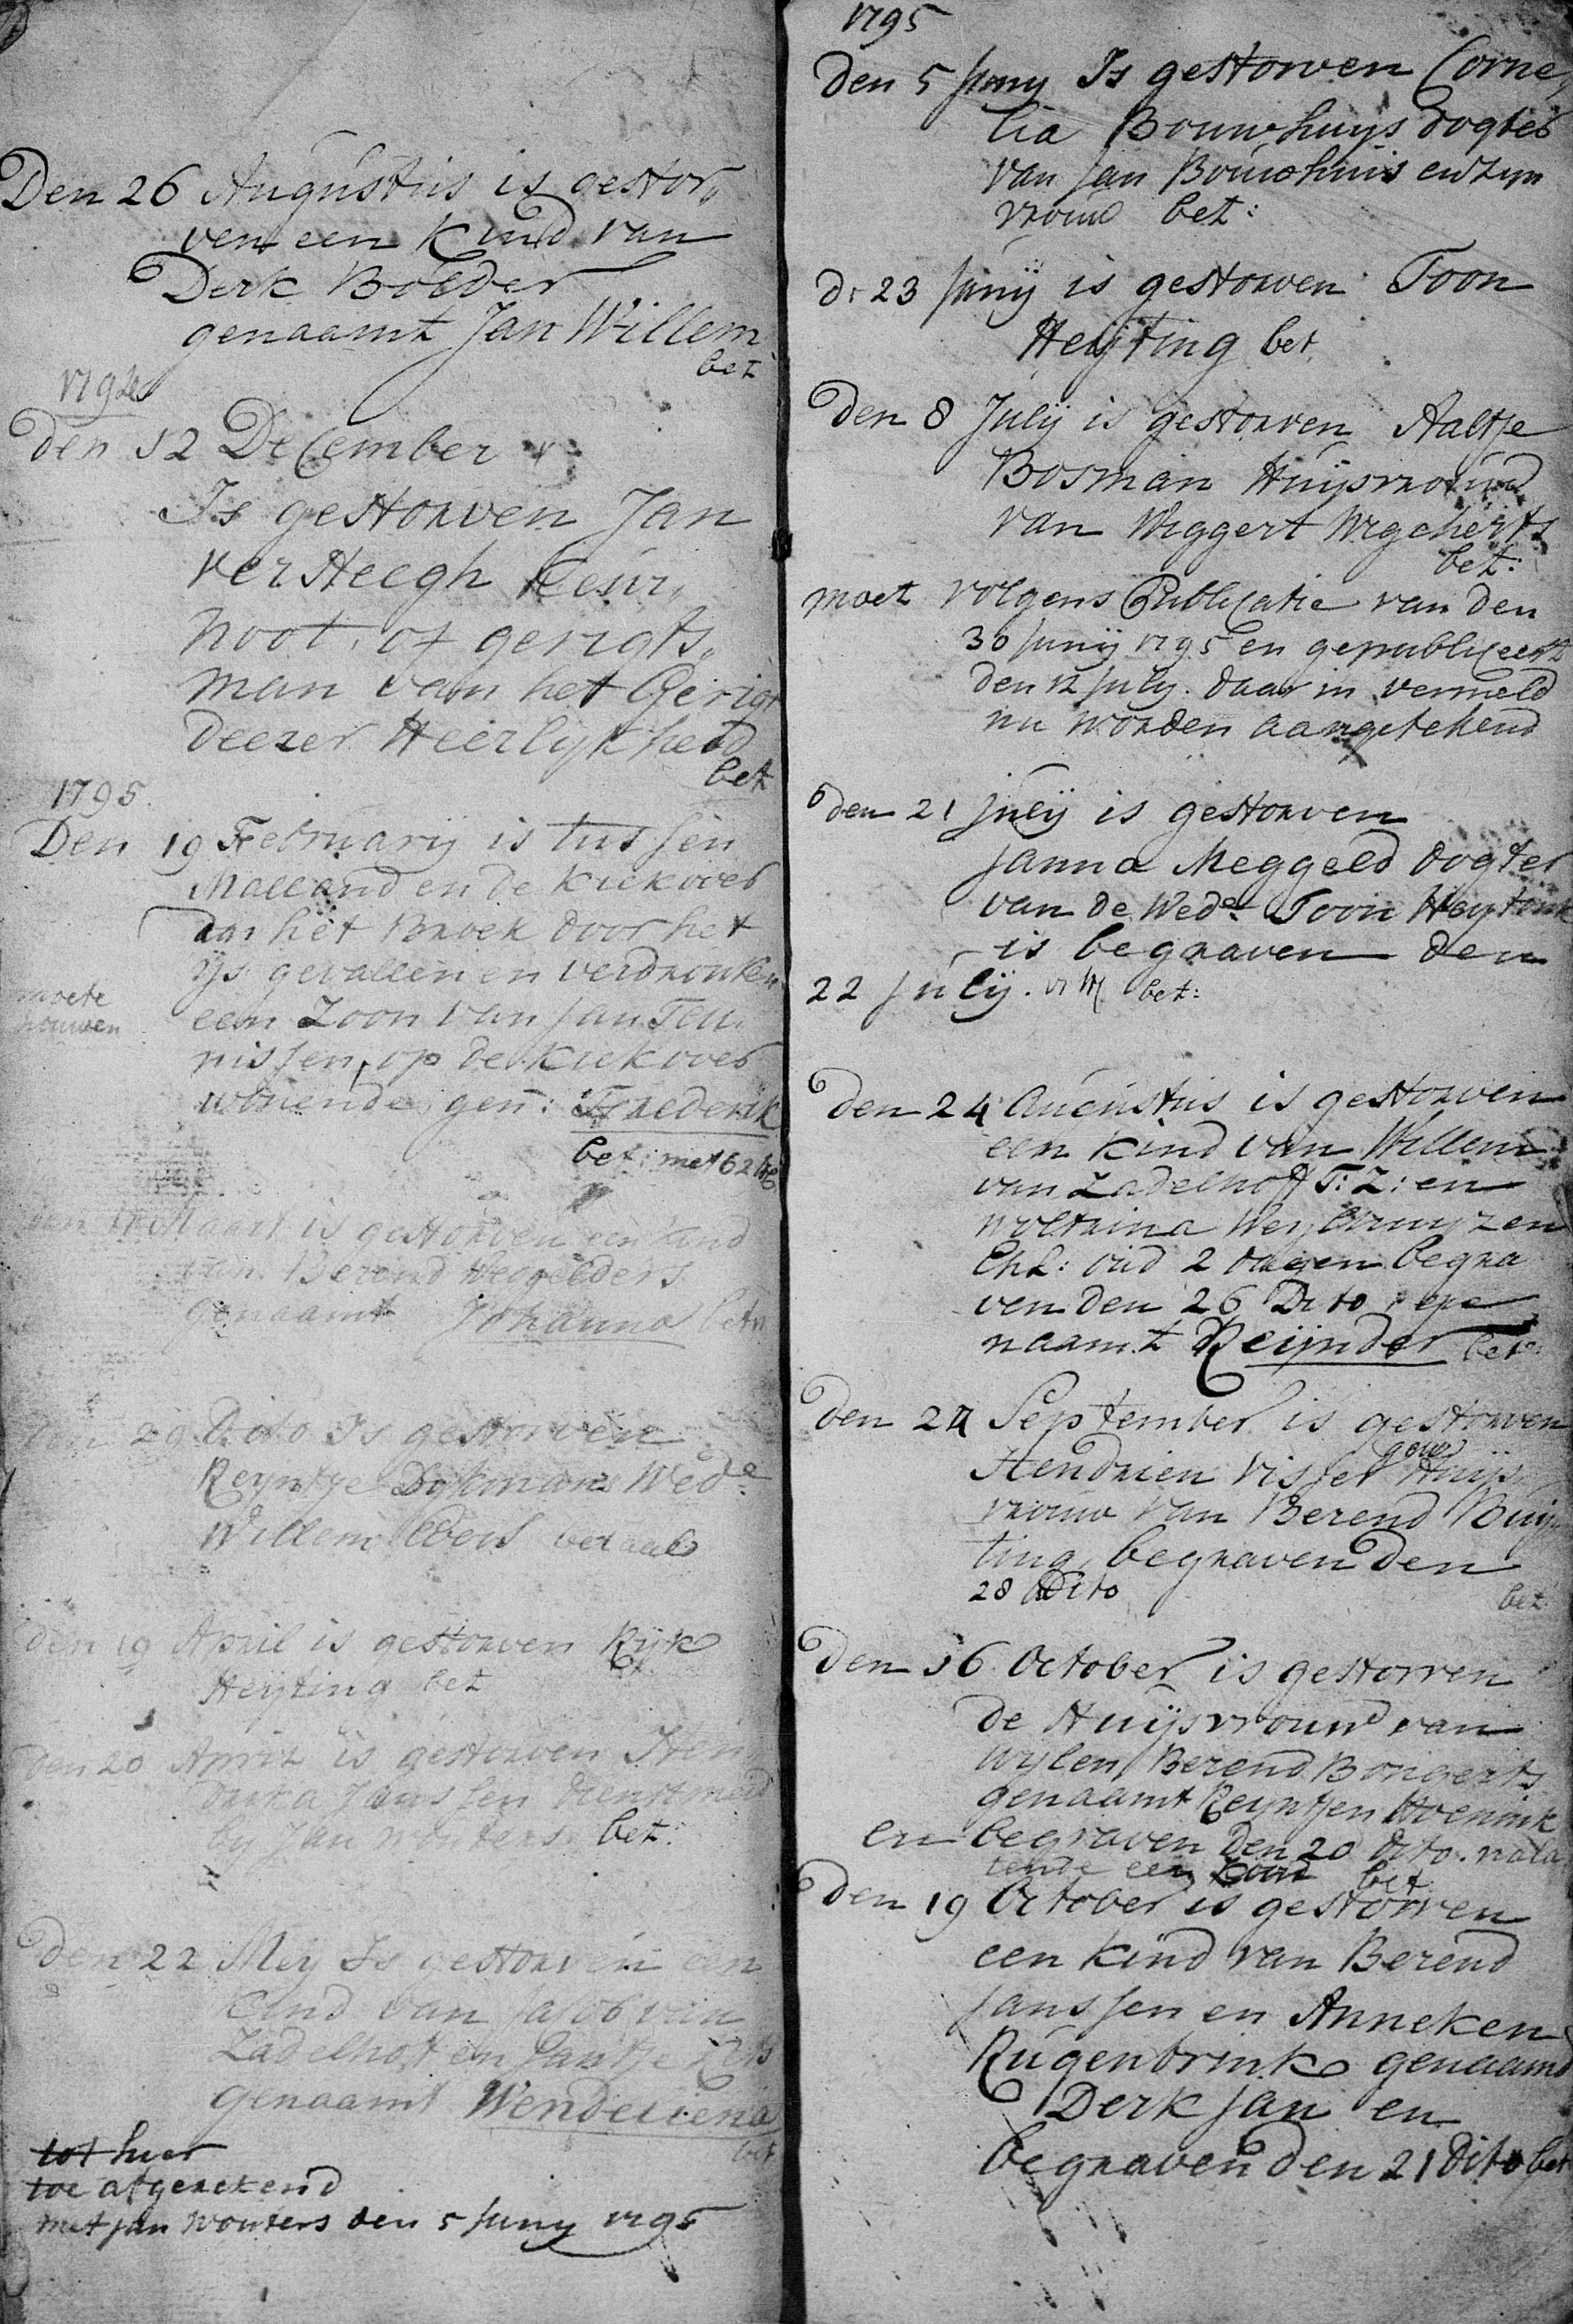 Den 26 Augustus is gestor,,
ven een Kind van
Derk Bolder
genaamt Jan Willem
bet
den 12 December
Is gestorven Jan
ver Steegh Keur,,
noot, of gerigts,,
man van het Gerigt
deezer Heerlijkheid
bet
1795
Den 19 Februarij is tussen
Malland en de Kiekover
aan het Broek door het
ijs gevallen en verdronken
een Zoon van Jan Teu,,
nissen, op de Kiekover
wonende, gen: Frederik
bet: met 6 2
den Maart is gestorven een kind
van Berend
genaamt Johanna bet
den 29 Dito Is gestorven
Reyntje Dijkmans Wede
Willem betaalt
den 19 April is gestorven Rijk
Heijting bet
den 20 April is gestorven Hen
drika Janssen dienstmeid
bij Jan Wouters bet:
den 22 Mey Is gestorven een
Kind van Jacob van
Zadelhof en Jantje
genaamt Wendeliena
bet
tot hier
toe afgerekend
met Jan Wouters den 5 Juny 1795
1795
Den 5 Juny Is gestorven Corne,,
lia Bouwhuys dogter
van Jan Bouwhuis en zyn
vrouw bet:
d: 23 Junij is gestorven Toon
Heijting bet
Den 8 Julij is gestorven Aaltje
Bosman Huijsvrouw
van Wiggert Wigcherts
bet:
moet volgens Publicatie van den
30 Junij 1795 en gepubliceert
den 12 July. daar in vermeld
nu worden aangetekend
den 21 Julij is gestorven
Janna Meggeld dogter
van de Wede Toon Heytink
is begraven den
22 Julij. bet:
Den 24 Augustus is gestorven
een Kind van Willem
van Zadelhoff T: Z: en
Woltrina
Ehl: oud 2 dagen begra
ven den 26 Dito, ge
naamt Reijnder bet:
Den 24 September is gestorven
Hendrien Visser gew Huijs
vrouw van Berend Buij
ting, begraven den
28 Dito bet
Den 16 October is gestorven
de Huijsvrouw van
wylen Berend Bongerts
genaamt Reyntjen Hoenink
en begraven den 20 dito. nala
tende een Kind bet
Den 19 October is gestorven
een Kind van Berend
Janssen en Anneken
Rugenbrink genaamd
Derk Jan en
begraven den 21 Dito bet